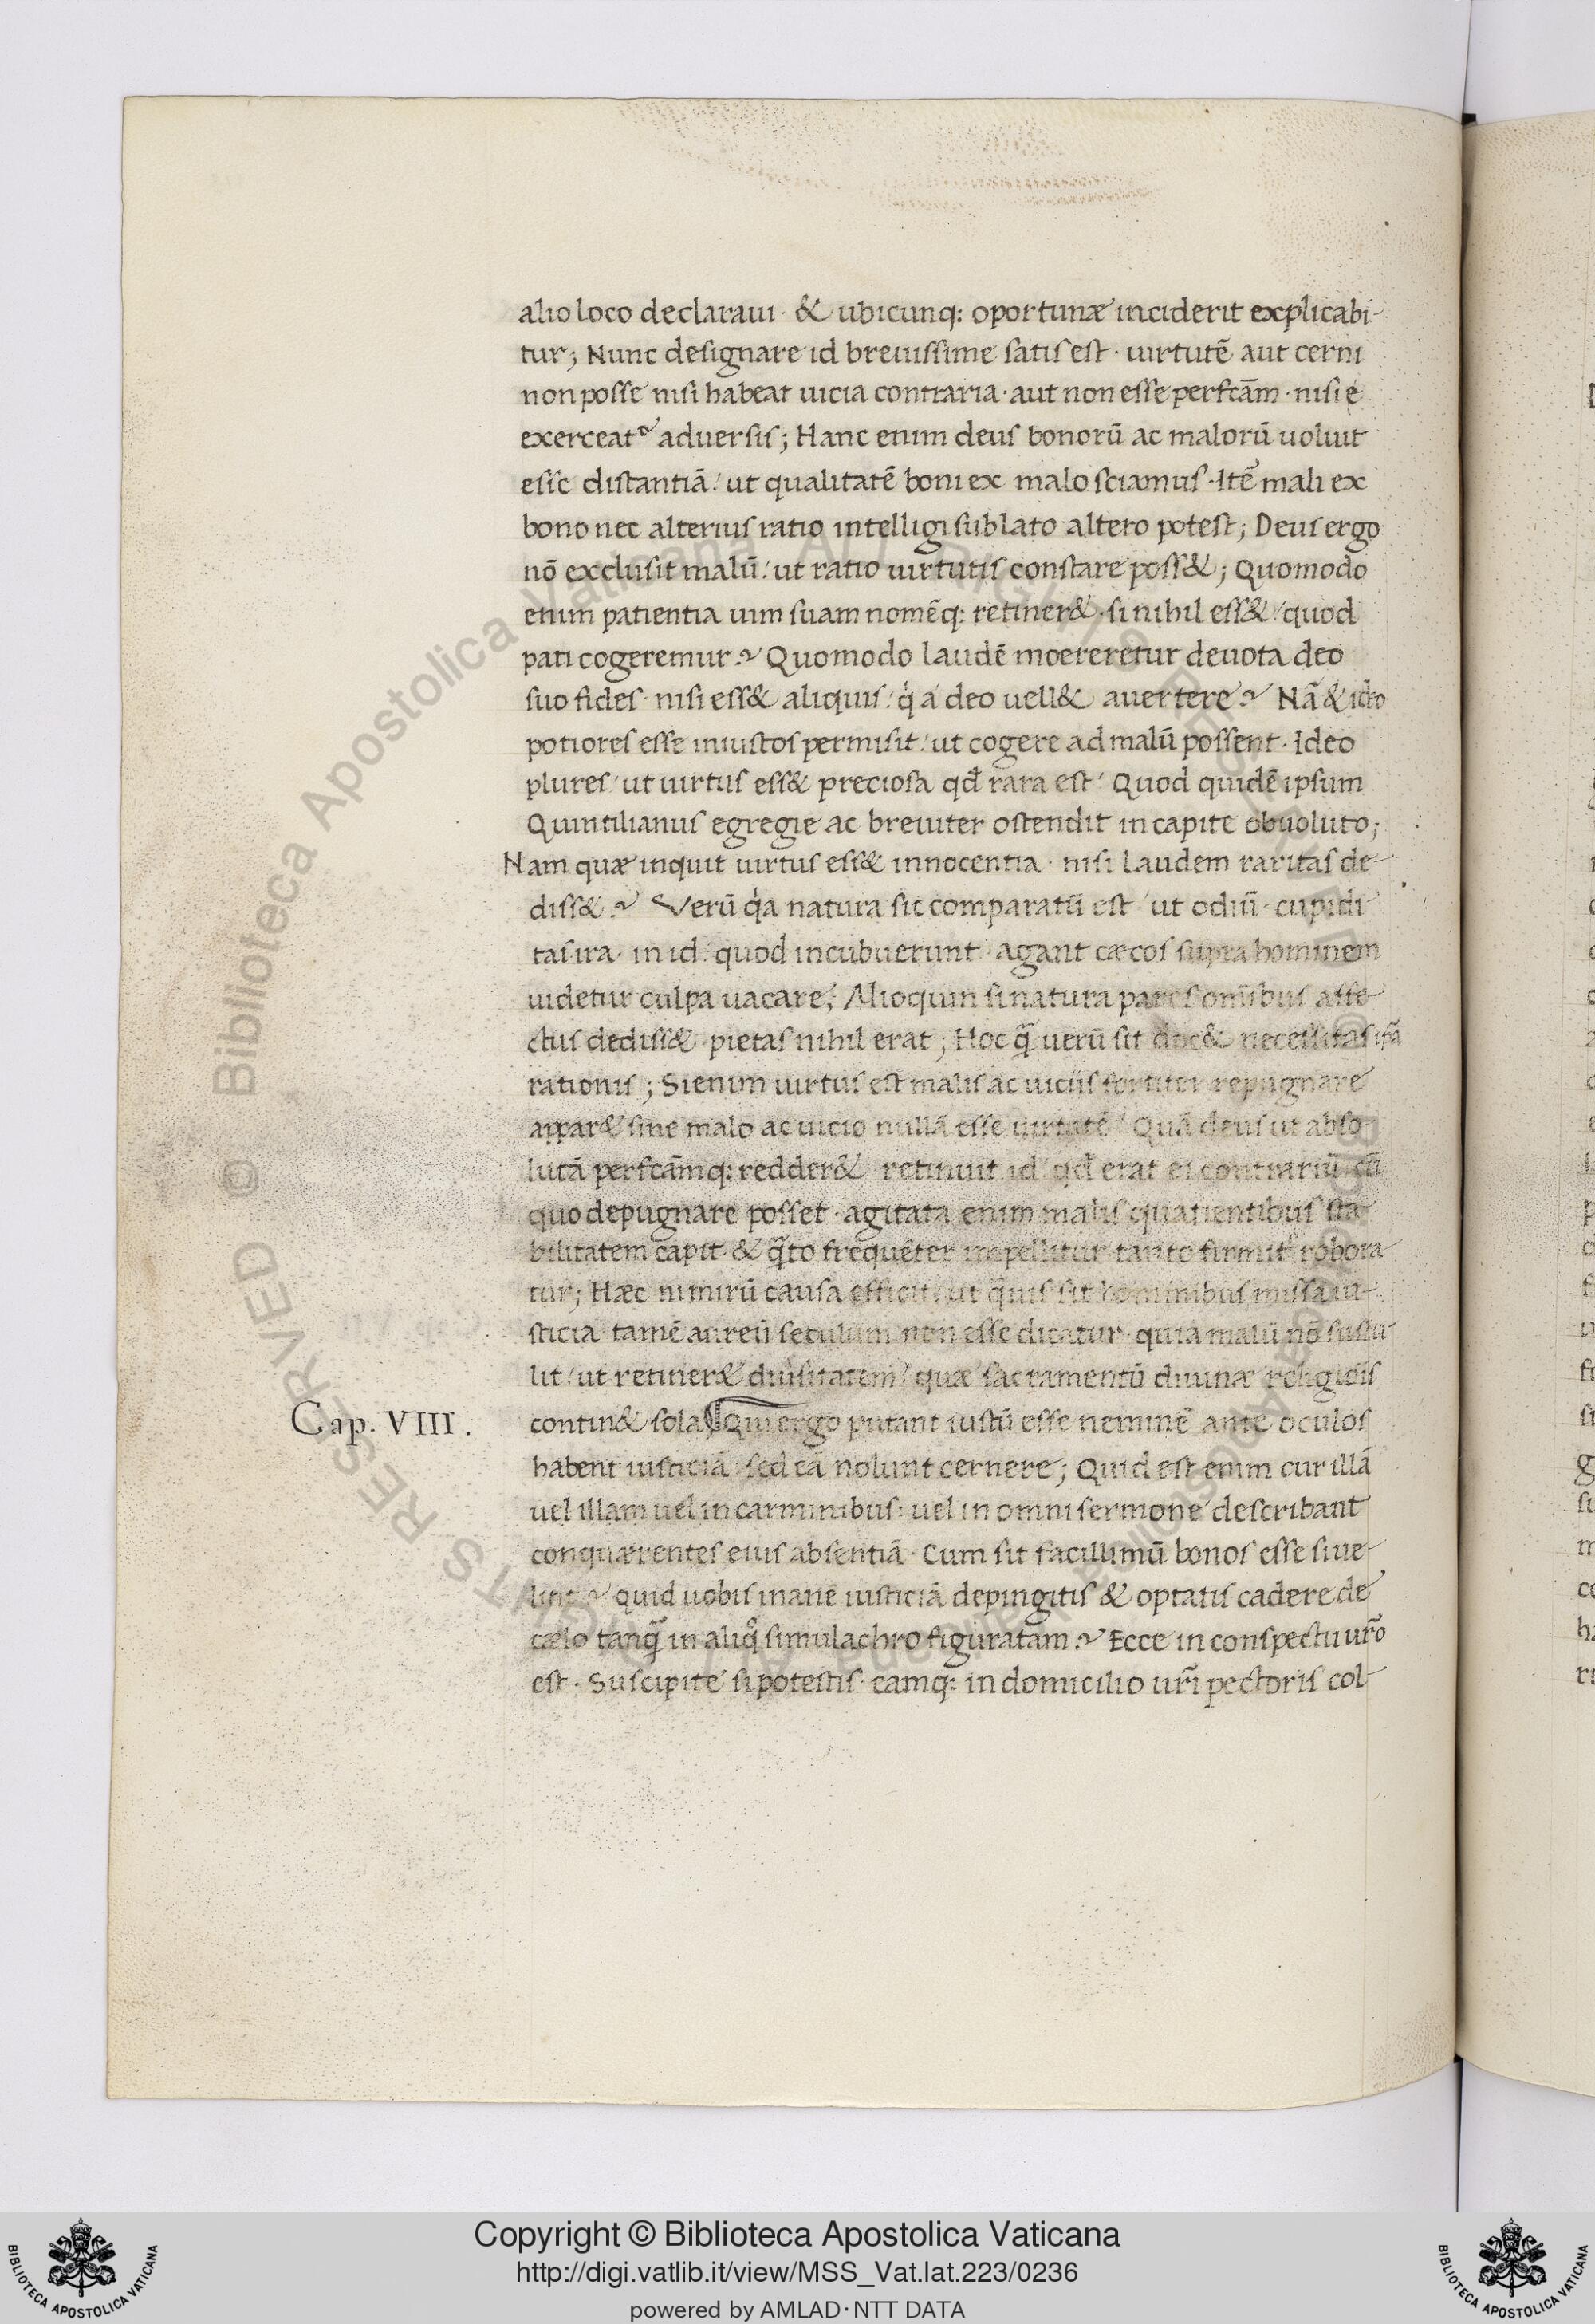 alio loco declaraui · & ubicunq: oportunæ inciderit explicabi-
tur; Nunc designare id breuissime satis est · uirtutē aut cerni
non posse nisi habeat uicia contraria · aut non esse perfcām · nisi e
exerceat᷑ aduersis; Hanc enim deus bonorū ac malorū uoluit
esse distantiā/ ut qualitatē boni ex malo sciamus · Itē mali ex
bono nec alterius ratio intelligi sublato altero potest; Deus ergo
nō exclusit malū/ ut ratio uirtutis constare poss&; Quomodo
enim patientia uim suam nomēq: retiner& · si nihil ess& / quod
pati cogeremur? Quomodo laudē moereretur deuota deo
suo fides · nisi ess& aliquis/ q̇ a deo uell& auertere? Nā & ideo
potiores esse iniustos permisit/ ut cogere ad malū possent · Ideo
plures/ ut uirtus ess& preciosa qd̄ rara est/ Quod quidē ipsum
Quintilianus egregie ac breuiter ostendit in capite obuoluto;
Nam quæ inquit uirtus ess& innocentia · nisi laudem raritas de-
diss&? Verū q̇a natura sic comparatū est / ut odiū · cupidi
tas ira · in id/ quod incubuerunt · agant cæcos supra hominem
uidetur culpa uacare; Alioquin si natura pares om̄ibus affe-
ctus dediss& · pietas nihil erat; Hoc q̄ uerū sit doc& necessitas ip̄a
rationis; Si enim uirtus est malis ac uiciis fortiter repugnare
appar& sine malo ac uicio nullā esse uirtutē / Quā deus ut abso
lutā perfcāmq: redder& retinuit id/ qd̄ erat ei contrariū cū
quo depugnare posset · agitata enim malis quatientibus sta
bilitatem capit · & q̄to frequēter impellitur tanto firmit᷑ robora-
tur; Hæc nimirū causa efficit/ ut q̄uis sit hominibus missa iu-
sticia tamē aureū seculum non esse dicatur · quia malū nō sustu-
lit/ ut retiner& diuisitatem/ quæ sacramentū diuinæ religiōis
Cap. VIII.
contin& sola Qui ergo putant iustū esse neminē ante oculos
habent iusticiā/ sed eā nolunt cernere; Quid est enim cur illā
uel illam uel in carminibus: uel in omni sermone describant
conquærentes eius absentiā · Cum sit facillimū bonos esse si ue-
lint? quid uobis inanē iusticiā depingitis & optatis cadere de
cælo tanq̄ in aliqͦ simulachro figuratam? Ecce in conspectu ur̄o
est · Suscipite si potestis · eamq: in domicilio ur̄i pectoris col-
Copyright © Biblioteca Apostolica Vaticana
http://digi.vatlib.it/view/MSS_Vat.lat.223/0236
powered by AMLAD·NTT DATA
BIBLIOTECA APOSTOLICA VATICANA
BIBLIOTECA APOSTOLICA VATICANA